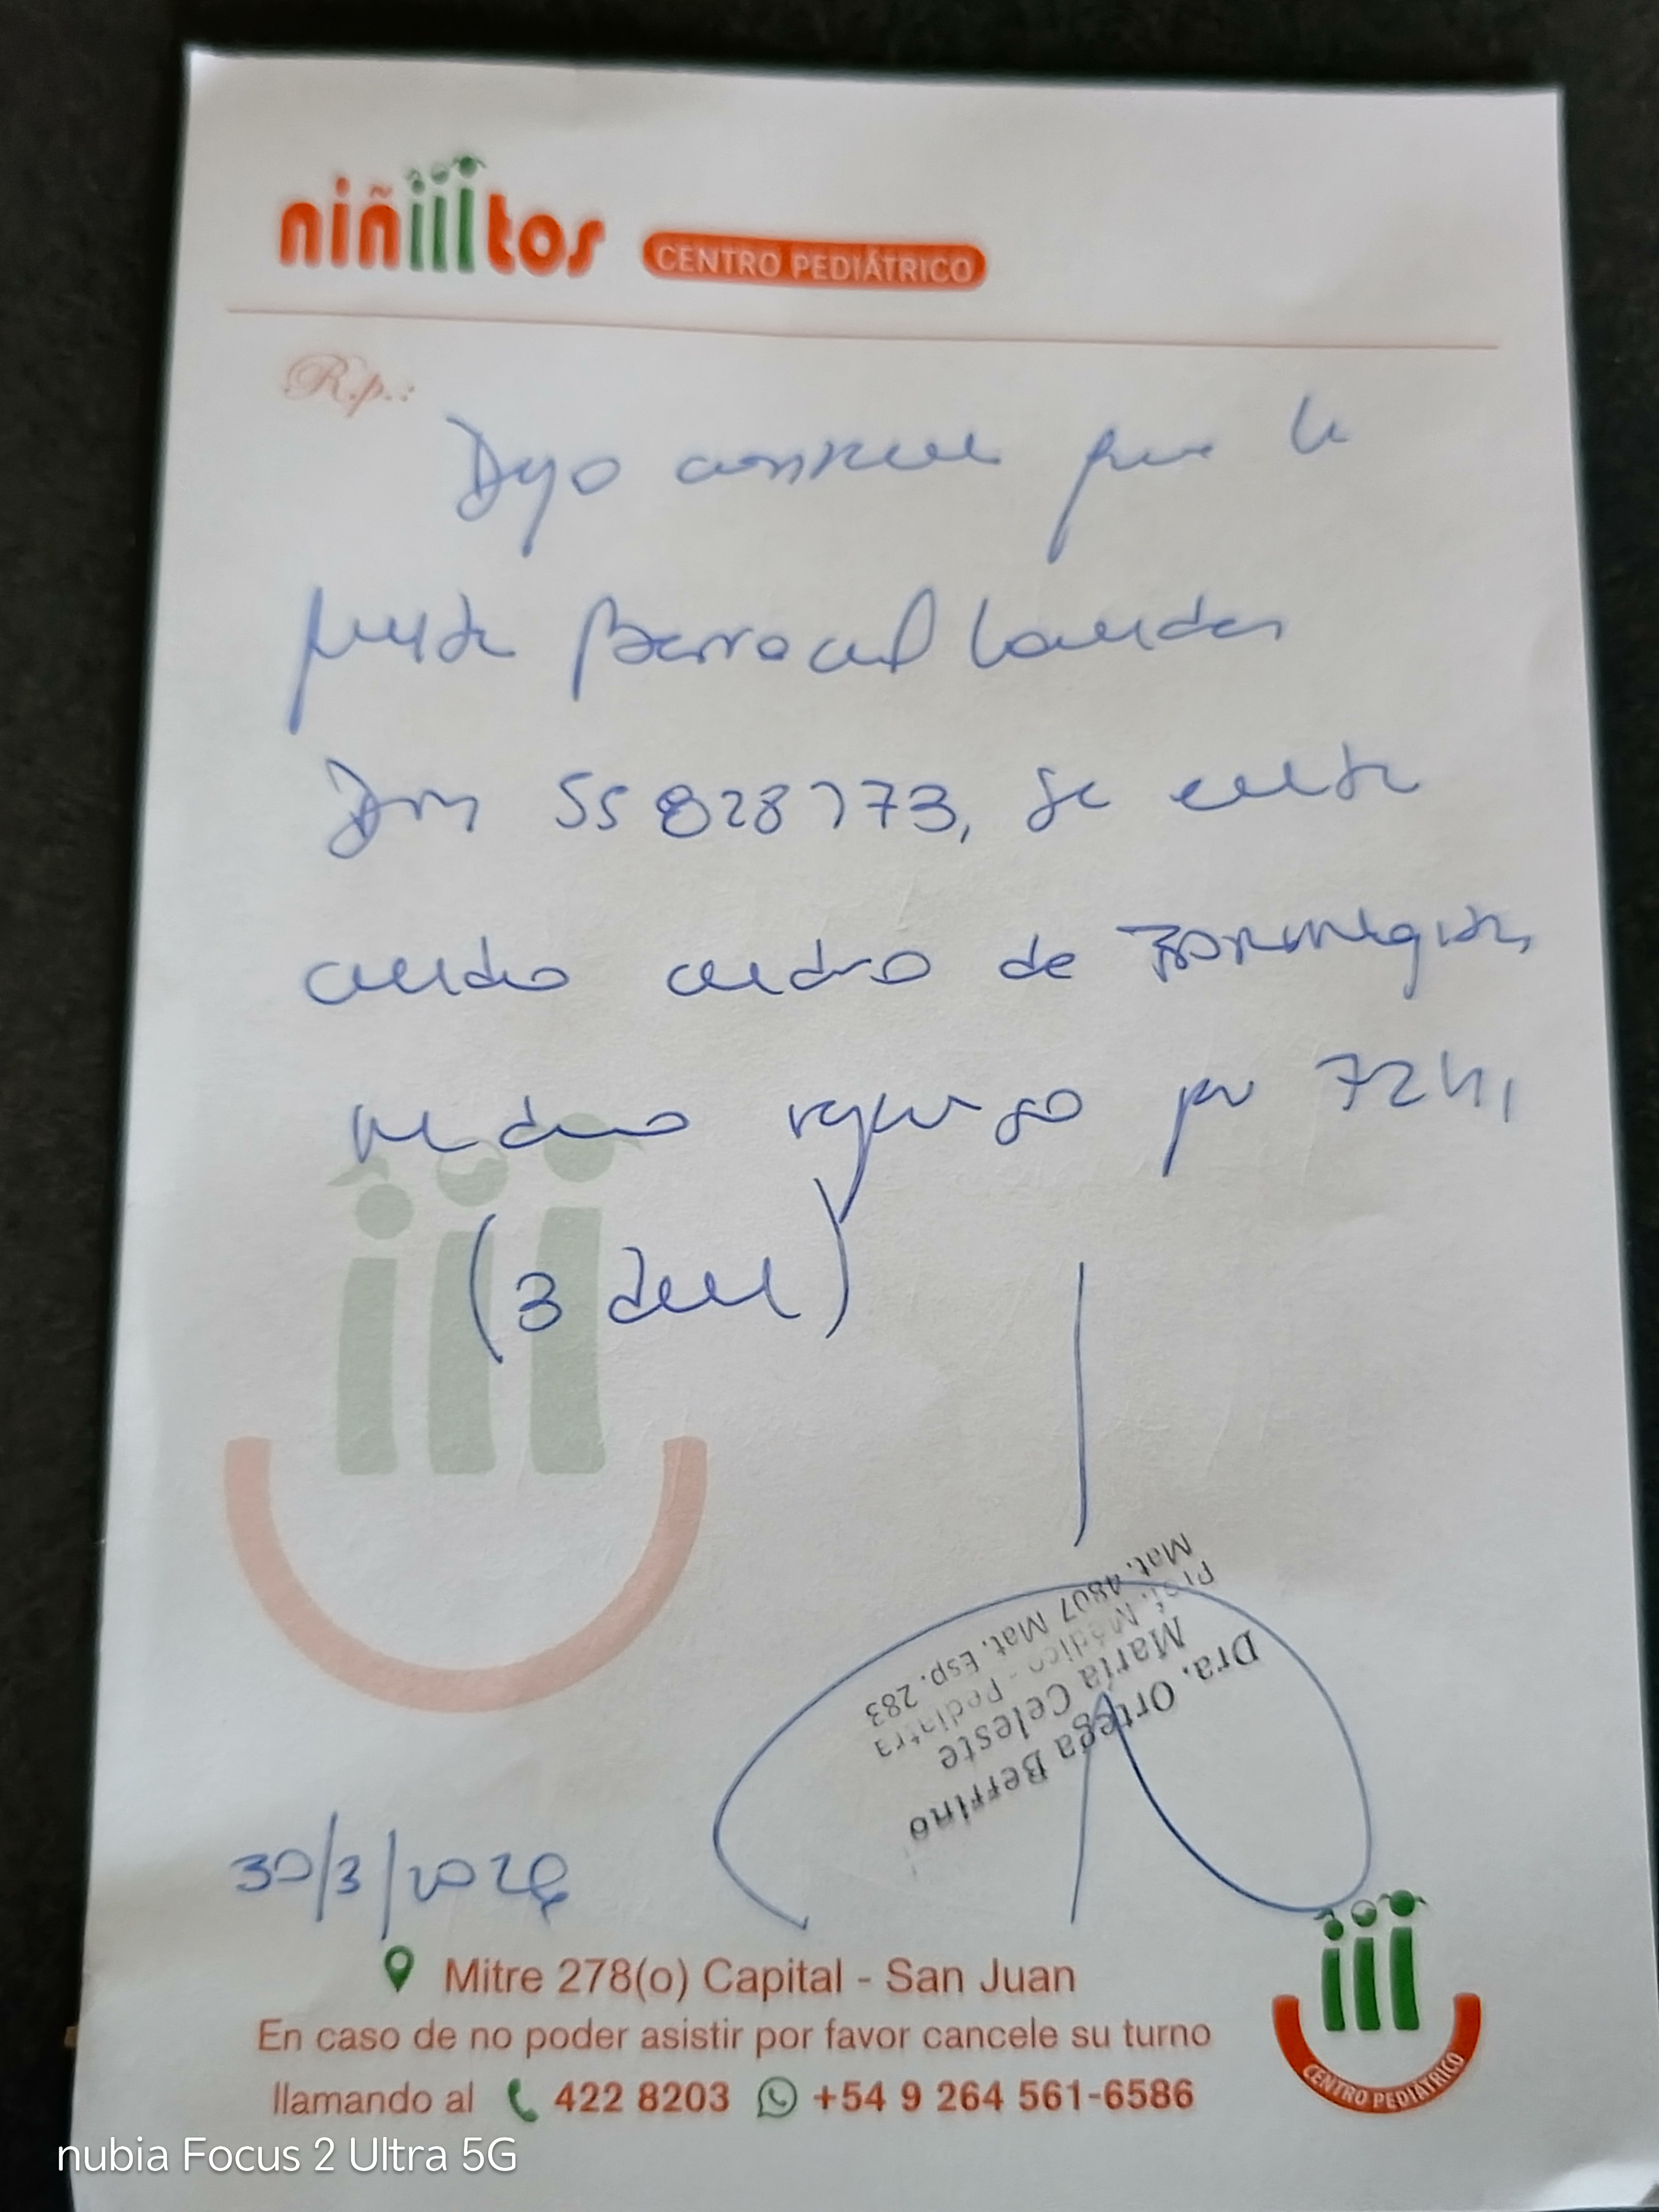 niñiiitos CENTRO PEDIÁTRICO
R.p.:
Dejo constancia que la
paciente Berrocal Lourdes
DNI 55828773, se encuentra
cursando cuadro de
indico reposo por 72 hs
(3 dias)
Dra. Ortega Berrino
María Celeste
Prof. Médico - Pediatra
Mat. 4807 Mat. Esp. 283
30/3/2026
Mitre 278(o) Capital - San Juan
En caso de no poder asistir por favor cancele su turno
llamando al 422 8203 +54 9 264 561-6586
CENTRO PEDIÁTRICO
nubia Focus 2 Ultra 5G